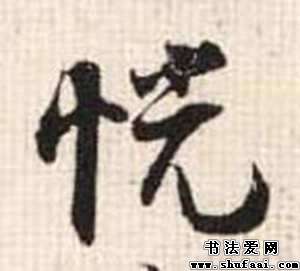 恍
书法爱网
www.shufaai.com